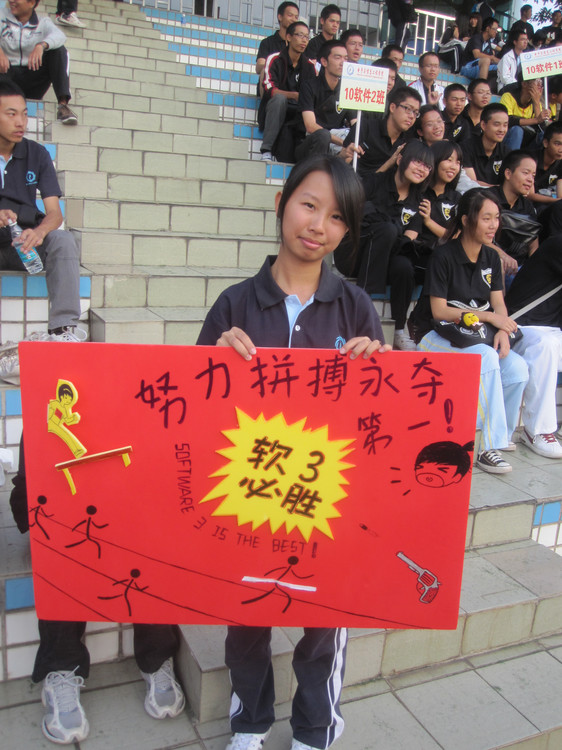 10软件2班
10软件1班
努力拼搏永夺
第一!
软3
必胜
SOFTWARE 3 IS THE BEST!